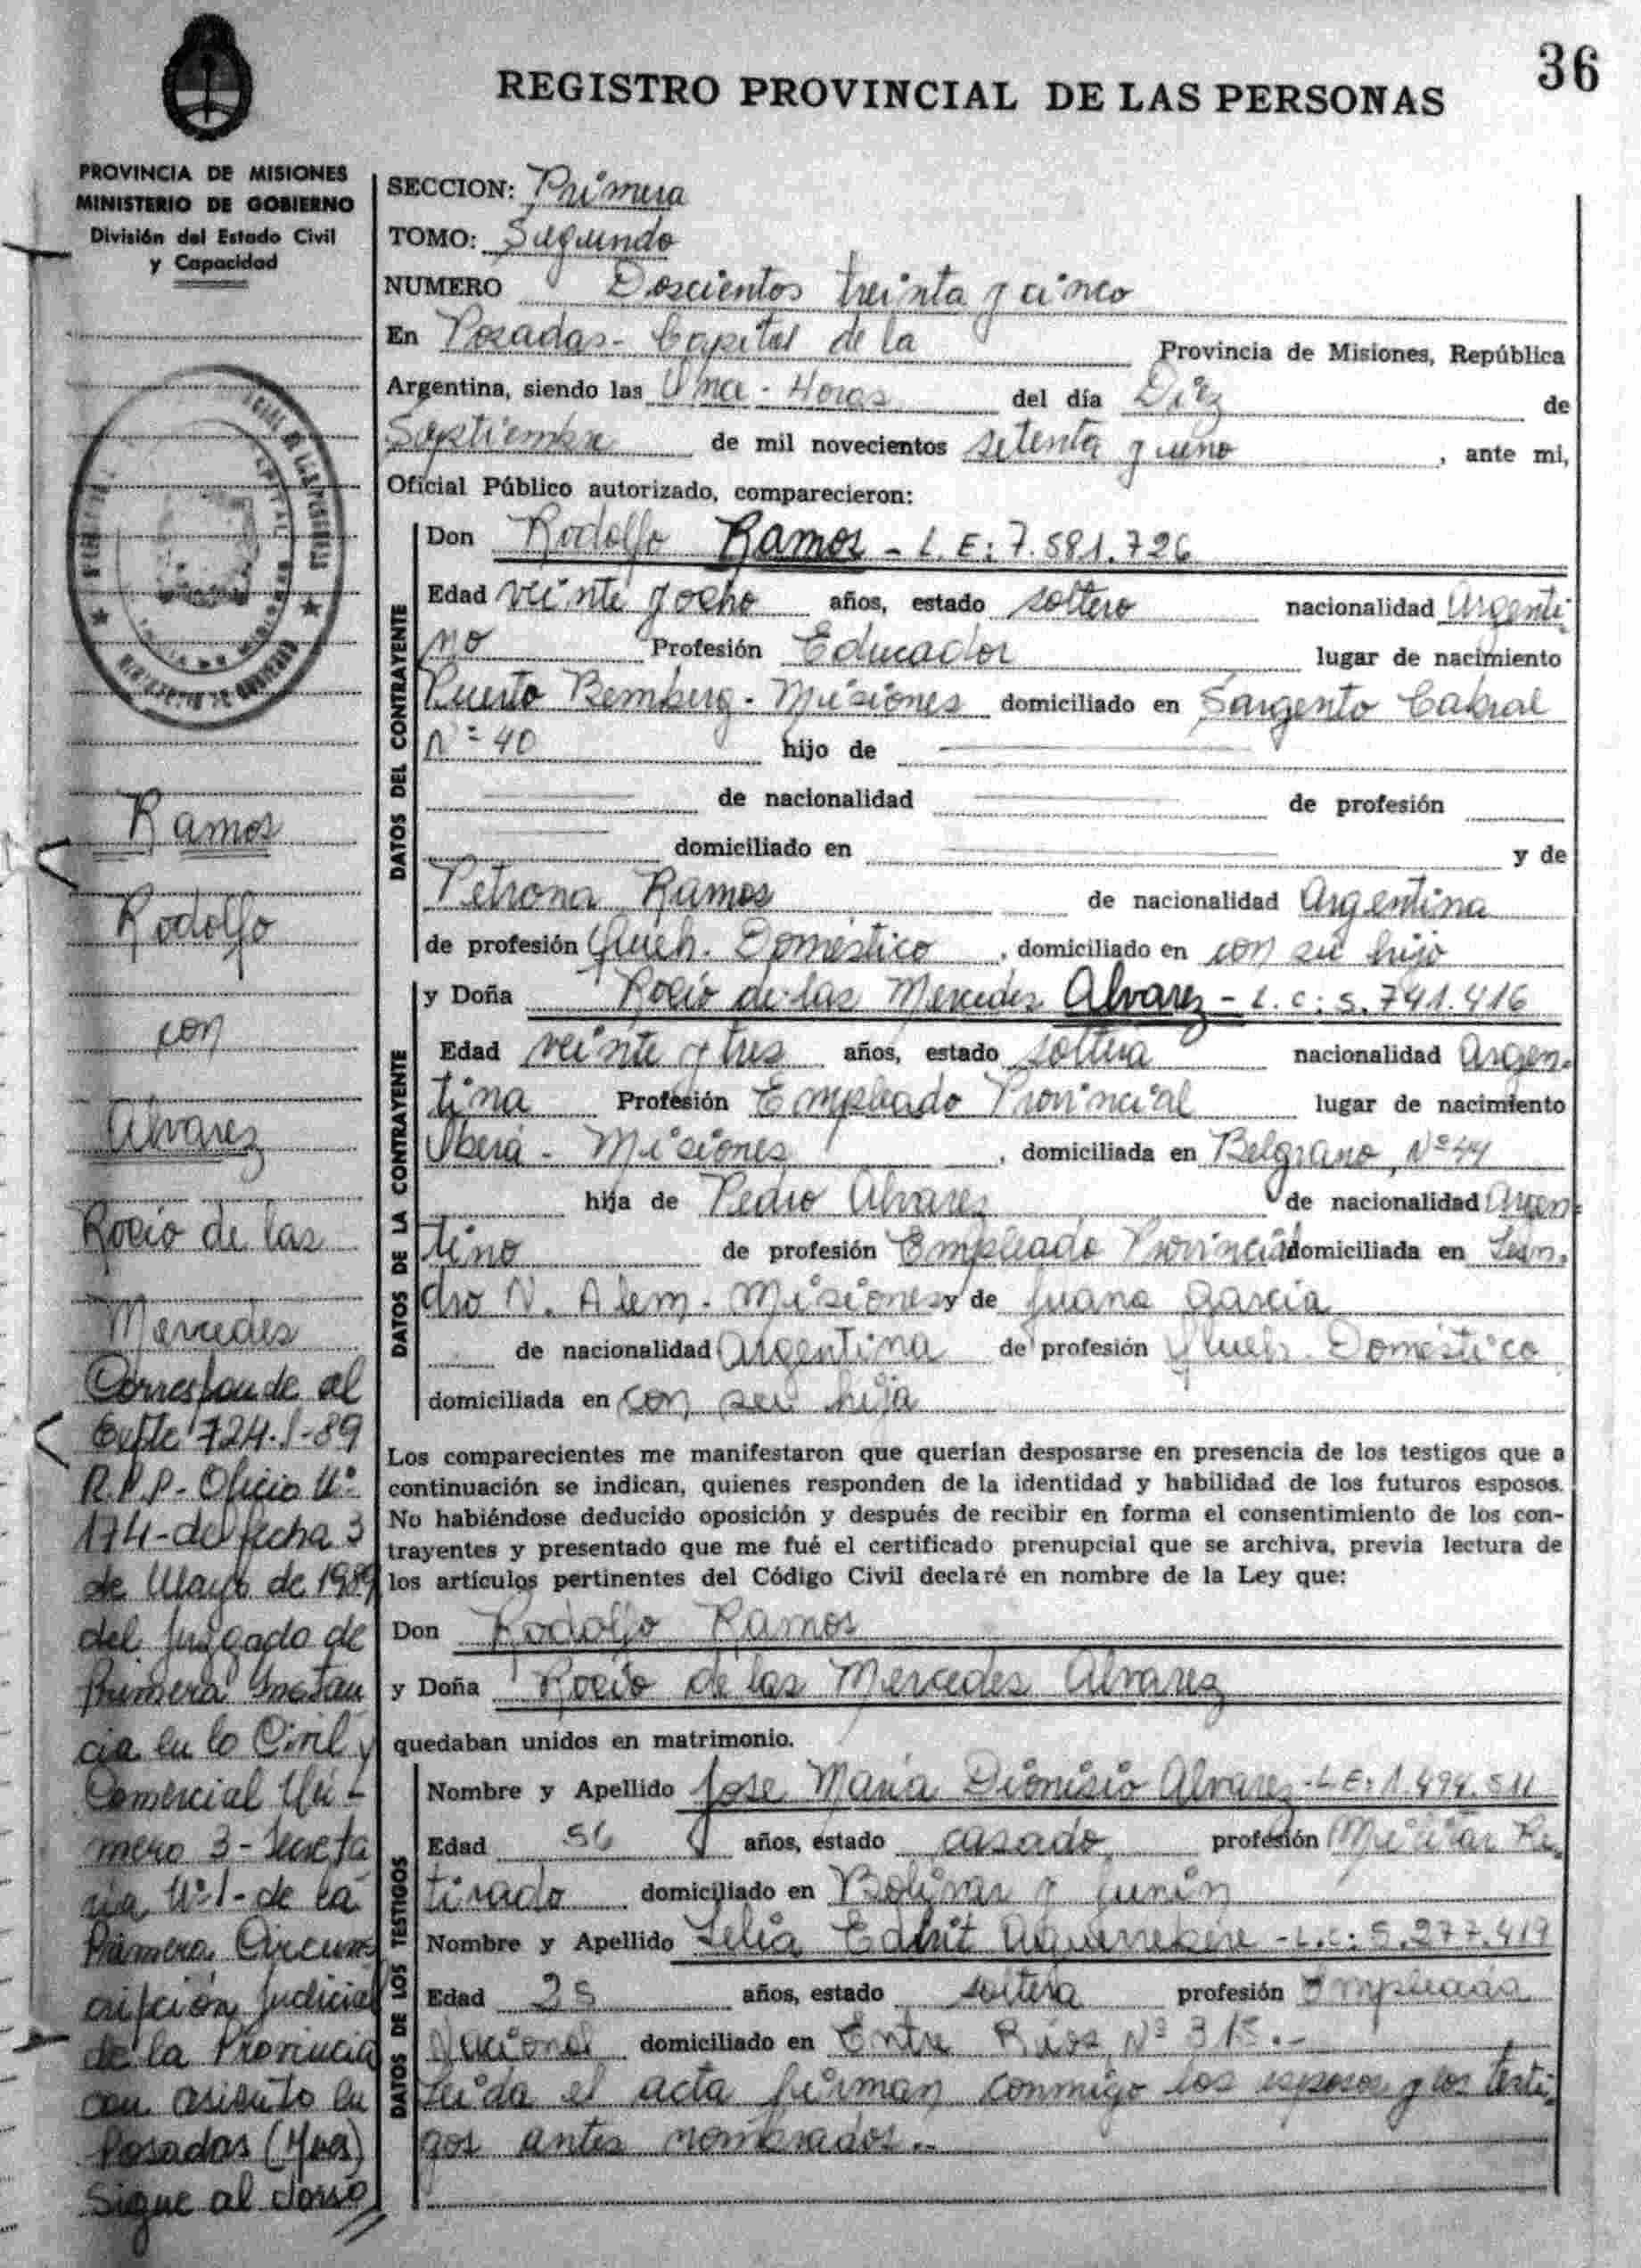 36
REGISTRO PROVINCIAL DE LAS PERSONAS
PROVINCIA DE MISIONES
MINISTERIO DE GOBIERNO
División del Estado Civil
y Capacidad
Ramos
Rodolfo
con
Alvarez
Rocio de las
Mercedes
Corresponde al
Expte 724. -89
R.P.P- Oficio Nº
174- de fecha 3
de Mayo de 1989
del Juzgado de
Primera Instan
cia en lo Civil y
Comercial Nú-
mero 3- Secreta
ria Nº1- de la
Primera Circuns
cripción Judicial
de la Provincia
con asiento en
Posadas (Mnes)
Sigue al dorso
SECCION: Primera
TOMO: Segundo
NUMERO Doscientos treinta y cinco
En Posadas- Capital de la Provincia de Misiones, República
Argentina, siendo las Una - Horas del día Diez de
Septiembre de mil novecientos setenta y uno, ante mi,
Oficial Público autorizado, comparecieron:
DATOS DEL CONTRAYENTE
Don Rodolfo Ramos - L.E: 7.581.726
Edad veinte y ocho años, estado soltero nacionalidad Argenti-
no Profesión Educador lugar de nacimiento
Puerto Bemberg - Misiones domiciliado en Sargento Cabral
Nº 40 hijo de
de nacionalidad de profesión
domiciliado en y de
Petrona Ramos de nacionalidad Argentina
de profesión Queh. Doméstico, domiciliado en con su hijo
DATOS DE LA CONTRAYENTE
y Doña Rocio de las Mercedes Alvarez - L.C: 5.741.416
Edad veinte y tres años, estado soltera nacionalidad Argen-
tina Profesión Empleado Provincial lugar de nacimiento
Oberá - Misiones, domiciliada en Belgrano, Nº 44
hija de Pedro Alvarez de nacionalidad Argen-
tino de profesión Empleado Provincial domiciliada en Lean-
dro N. Alem - Misiones y de Juana Garcia
de nacionalidad Argentina de profesión Queh. Doméstico
domiciliada en con su hija
Los comparecientes me manifestaron que querían desposarse en presencia de los testigos que a
continuación se indican, quienes responden de la identidad y habilidad de los futuros esposos.
No habiéndose deducido oposición y después de recibir en forma el consentimiento de los con-
trayentes y presentado que me fué el certificado prenupcial que se archiva, previa lectura de
los artículos pertinentes del Código Civil declaré en nombre de la Ley que:
Don Rodolfo Ramos
y Doña Rocio de las Mercedes Alvarez
quedaban unidos en matrimonio.
DATOS DE LOS TESTIGOS
Nombre y Apellido Jose Maria Dionisio Alvarez - L.E: 1.494.511
Edad 56 años, estado casado profesión Militar Re-
tirado domiciliado en Bolivar y Junin
Nombre y Apellido Lelia Edhit - L.C: 5.277.419
Edad 25 años, estado soltera profesión Empleada
Nacional domiciliado en Entre Rios, Nº 315.-
Leida el acta firman conmigo los esposos y los testi-
gos antes nombrados.-